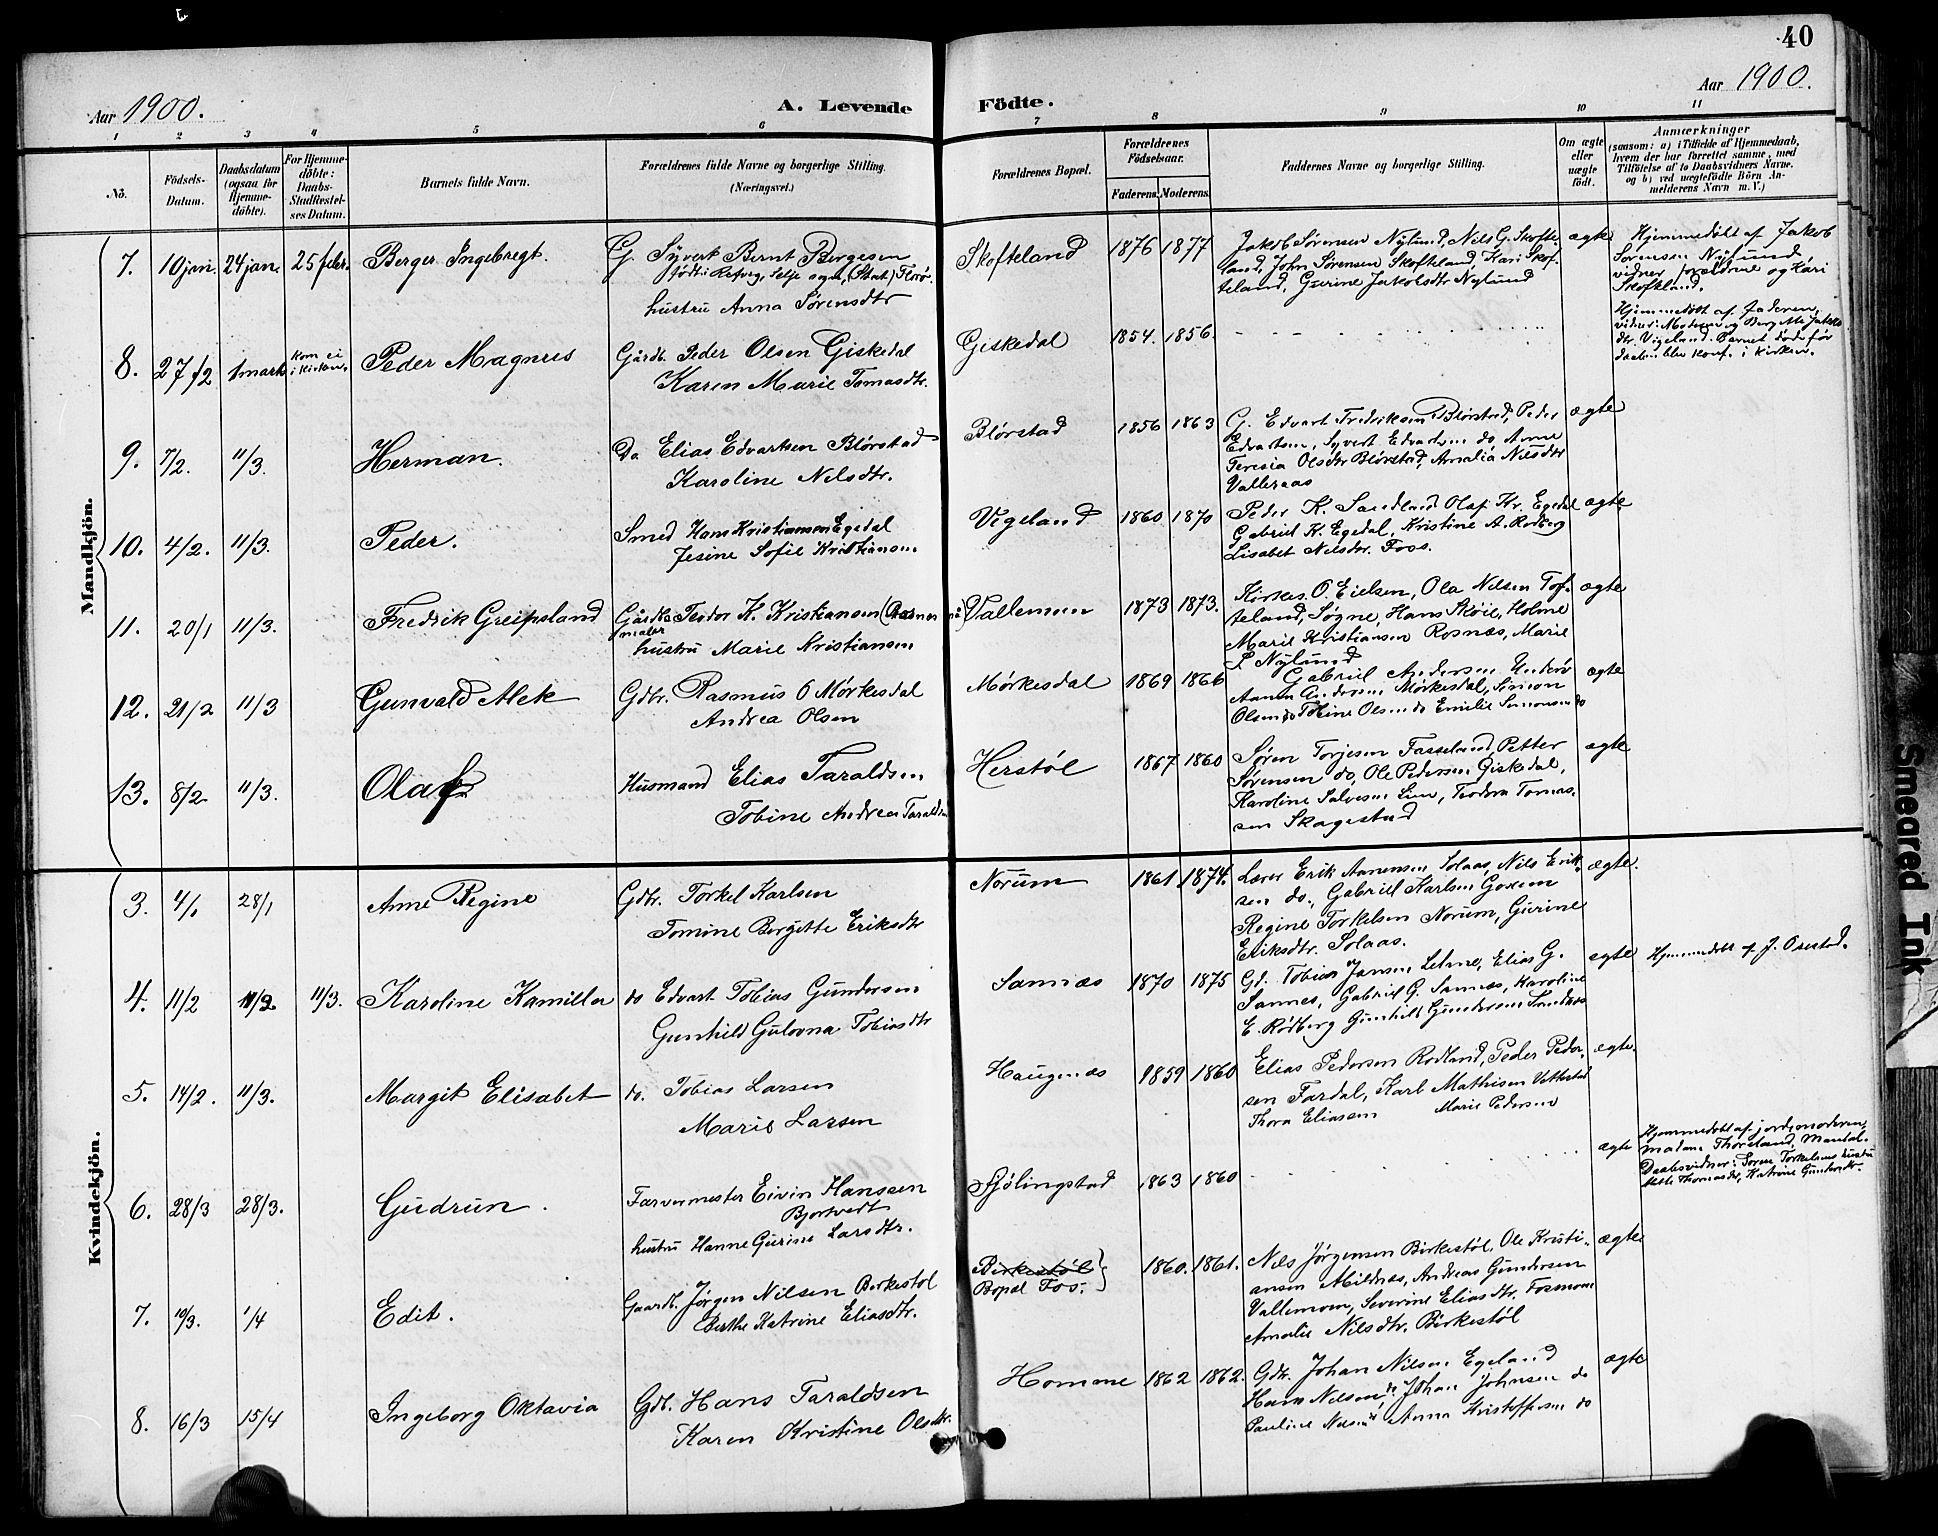 40
Aar 1900.
A. Levende Födte.
Aar 1900.
1 2 3 4 5 6 7 8 9 10 11
No.
Födsels-
Datum.
Daabsdatum
(ogsaa for
Hjemme-
döbte).
For Hjemme-
döbte:
Daabs-
Stadfæstel-
ses Datum.
Barnets fulde Navn.
Forældrenes fulde Navne og borgerlige Stilling.
(Næringsvei.)
Forældrenes Bopæl.
Forældrenes
Födselsaar.
Faderens. Moderens.
Faddernes Navne og borgerlige Stilling.
Om ægte
eller
uægte
født.
Anmærkninger
(saasom: a) i Tilfælde af Hjemmedaab,
hvem der har forrettet samme, med
Tilföielse af to Daabsvidners Navne.
og b) ved uægtefödte Börn An-
melderens Navn m. V.)
Mandkjön.
7. 10 jan. 24 jan. 25 febr. Berger Ingebregt.
G. Syvert Bernt Børgesen
født i Refvig, Selje ogn, (Stat)
hustru Anna Sørensdtr
Skofteland 1876 1877
Jakob Sørensen Nylund, Nils G. Skofte-
land, John Sørensen Skofteland, Kari Skof-
teland, Gurine Jakobsdtr Nylund
ægte
Hjemmedøbt af Jakob
Sørensen Nylund
vidner forældrene og Kari
Skofteland.
8. 27/2 1 mark kom ei
i kirken. Peder Magnus
Gårdb. Peder Olsen Giskedal
Karen Marie Tomasdtr.
Giskedal 1854. 1856.
Hjemmedøbt af Faderen,
vidner: Moderen og Bergitte Jakobs
dtr. Vigeland. Barnet døde før
daaben blev konf. i kirken.
9. 7/2. 11/3. Herman.
Do Elias Edvartsen Blörstad
Karoline Nilsdtr.
Blörstad 1856 1863
G. Edvart Fredriksen Blörstad, Peder
Edvartsen, Syvert Edvartsen do, Anne
Teresia Olsdtr Blörstad, Amalia Nilsdtr
Valleraas
ægte
10. 4/2. 11/3. Peder.
Smed Hans Kristiansen Egedal
Jesine Sofie Kristiansen.
Vigeland 1860 1870
Peder K. Sandland Olaf Kr. Egedal
Gabriel K. Egedal, Kristine A. Rødberg
Lisabet Nilsdtr. Foss.
ægte
11. 20/1 11/3. Fredrik Greipsland
Gårdb. Teodor K. Kristiansen
maler
hustru Marie Kristiansen
Vallemoen 1873 1873.
Kirkes. O. Eielsen, Ola Nilsen Tof-
teland, Søgne, Hans Skøie, Holme
Marie Kristiansen Rosnæs, Marie
P Nylund
ægte
12. 21/2 11/3 Gunvald Alek
Gdbr. Rasmus O Mörkesdal
Andrea Olsen
Mörkesdal 1869 1866
Gabriel Andersen Underö
Aanen Andersen Mörkesdal, Simon
Olsen do Tobine Olsen do Emilie Simonsen do
ægte
13. 8/2 11/3. Olaf
Husmand Elias Taraldsen
Tobine Andrea Taraldsen
Herstöl 1867 1860
Søren Torjesen Fasseland, Petter
Sørensen do, Ole Pedersen Giskedal,
Karoline Salvesen Lien, Teodora Tomas-
sen Skagestad
ægte
Kvindekjön.
3. 4/1 28/1 Anne Regine
Gdbr. Torkel Karlsen
Tomine Bergitte Eriksdtr
Norum 1861 1874.
Lærer Erik Aanensen Solaas, Nils Erik-
sen do., Gabriel Karlsen
Regine Torkelsen Norum, Gurine
Eriksdtr. Solaas.
ægte.
4. 11/2 11/2 11/3. Karoline Kamilla
do Edvart Tobias Gundersen
Gunhild Gulovna Tobiasdtr
Sannæs 1870 1875
Gd. Tobias Jansen Lehne, Elias G.
Sannes, Gabriel G. Sannæs, Karoline
E. Rødberg Gunhild Gundersen Sandnæs
ægte
Hjemmedøbt af J. Osestad.
5. 14/2. 11/3. Margit Elisabet
do. Tobias Larsen
Marie Larsen
Haugenæs 1859 1860
Elias Pedersen Rødland, Peder Peder-
sen Fardal, Karl Mathisen
Thora Eliassen Marie Pedersen
ægte.
6. 28/3 28/3. Gudrun.
Farvermester Eivin Hanssen
Bjortvedt
hustru Hanne Gurine Larsdtr.
Sjölingstad 1863 1860
ægte
Hjemmedøbt af jordemoderen,
madam Thoreland, Mandal.
Daabsvidner: Søren Torkelsens hustru
Mette Thomasdtr, Katrine Gundersdtr.
7. 10/3. 1/4 Edit.
Gaardb. Jörgen Nilsen Birkestöl
Berthe Katrine Eliasdtr.
Birkestöl
Bopæl Fos. } 1860. 1861.
Nils Jörgensen Birkestöl, Ole Kristi-
ansen Mildnæs, Andreas Gundersen
Vallemoen, Severine Eliasdtr. Fosmoen
Amalie Nilsdtr. Birkestöl
ægte
8. 16/3 15/4 Ingeborg Oktavia
Gdb. Hans Taraldsen
Karen Kristine Olsdtr.
Homme 1862 1862.
Gdb. Johan Nilsen Egeland
Hans Nilsen do Johan Johnsen do
Pauline Nilsen do Anna Kristoffersen do
ægte
Smeared Ink